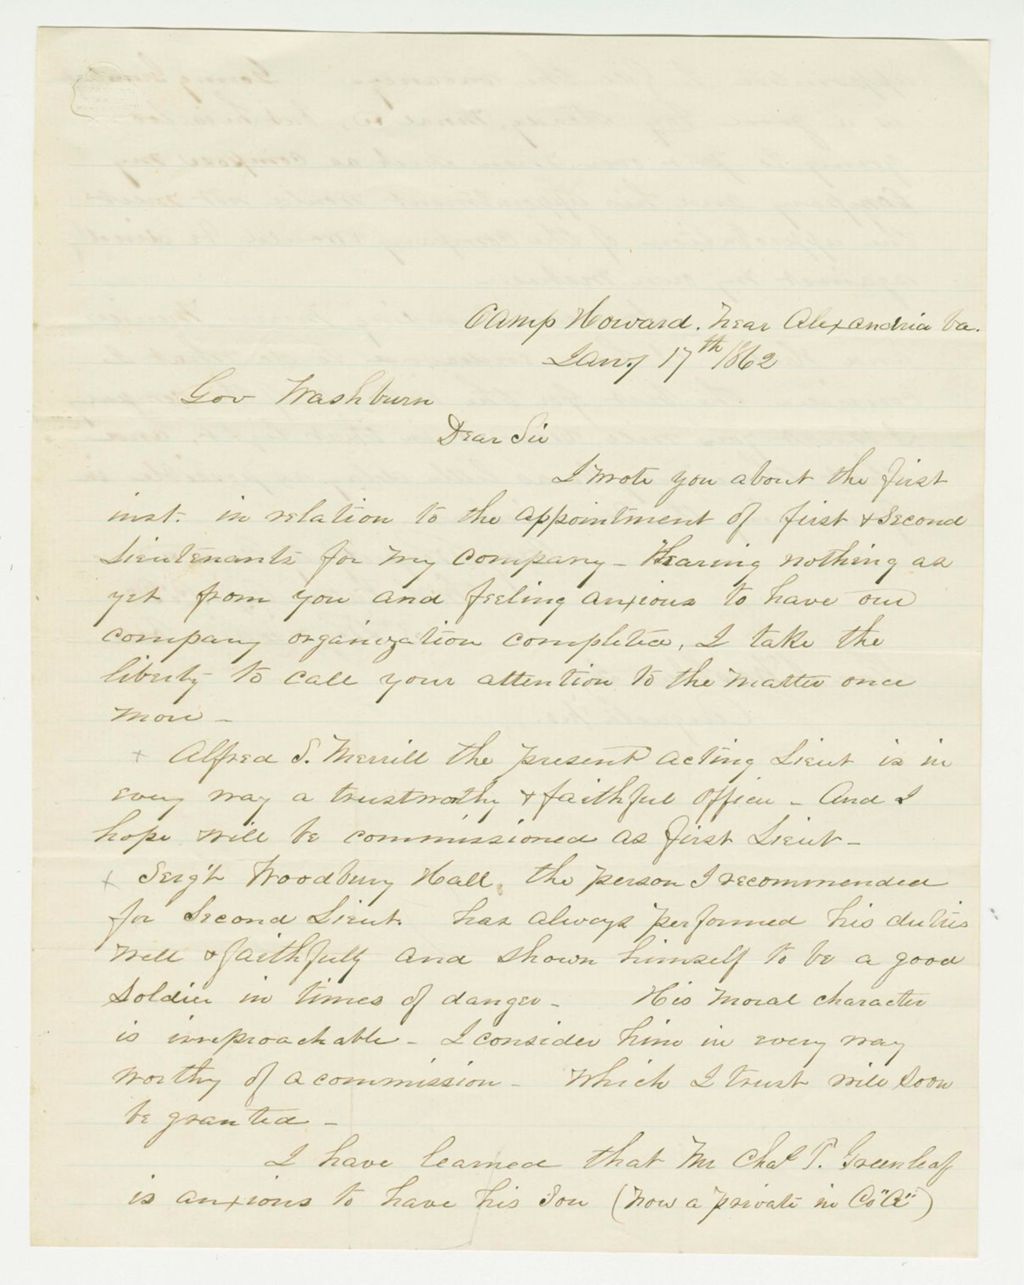 Camp Howard. Near Alexandria Va.
Jany 17th 1862
Gov Washburn
Dear Sir
I wrote you about the first
inst. in relation to the appointment of first & Second
Lieutenants for my company - Hearing nothing as
yet from you and feeling anxious to have our
company organization completed, I take the
liberty to call your attention to the matter once
more -
+ Alfred S. Merrill the present acting Lieut is in
every way a trustworthy & faithful officer - And I
hope will be commissioned as first Lieut -
+ Serg't Woodbury Hall, the person I recommended
for Second Lieut. has always performed his duties
well & faithfully and shown himself to be a good
Soldier in times of danger - His moral character
is irreproachable - I consider him in every way
worthy of a commission - which I trust will soon
be granted -
I have learned that Mr Chas P. Greenleaf
is anxious to have his Son (now a private in Co "A")